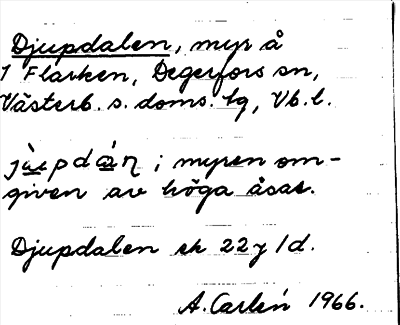 Djupdalen, myr å
1 Flarken, Degerfors sn,
Västerb. s. doms. tg, Vb. l.
; myren om-
given av höga åsar.
Djupdalen ek 22 y 1d.
A. Carlén 1966.